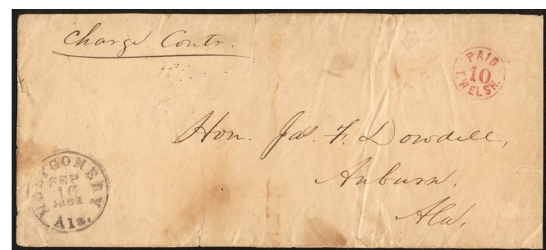 Charge Contr.
PAID
10
T. WELSH.
Hon. Jas. F. Dowdell,
Auburn,
Ala,
MONTGOMERY
SEP
16
1861
Ala.